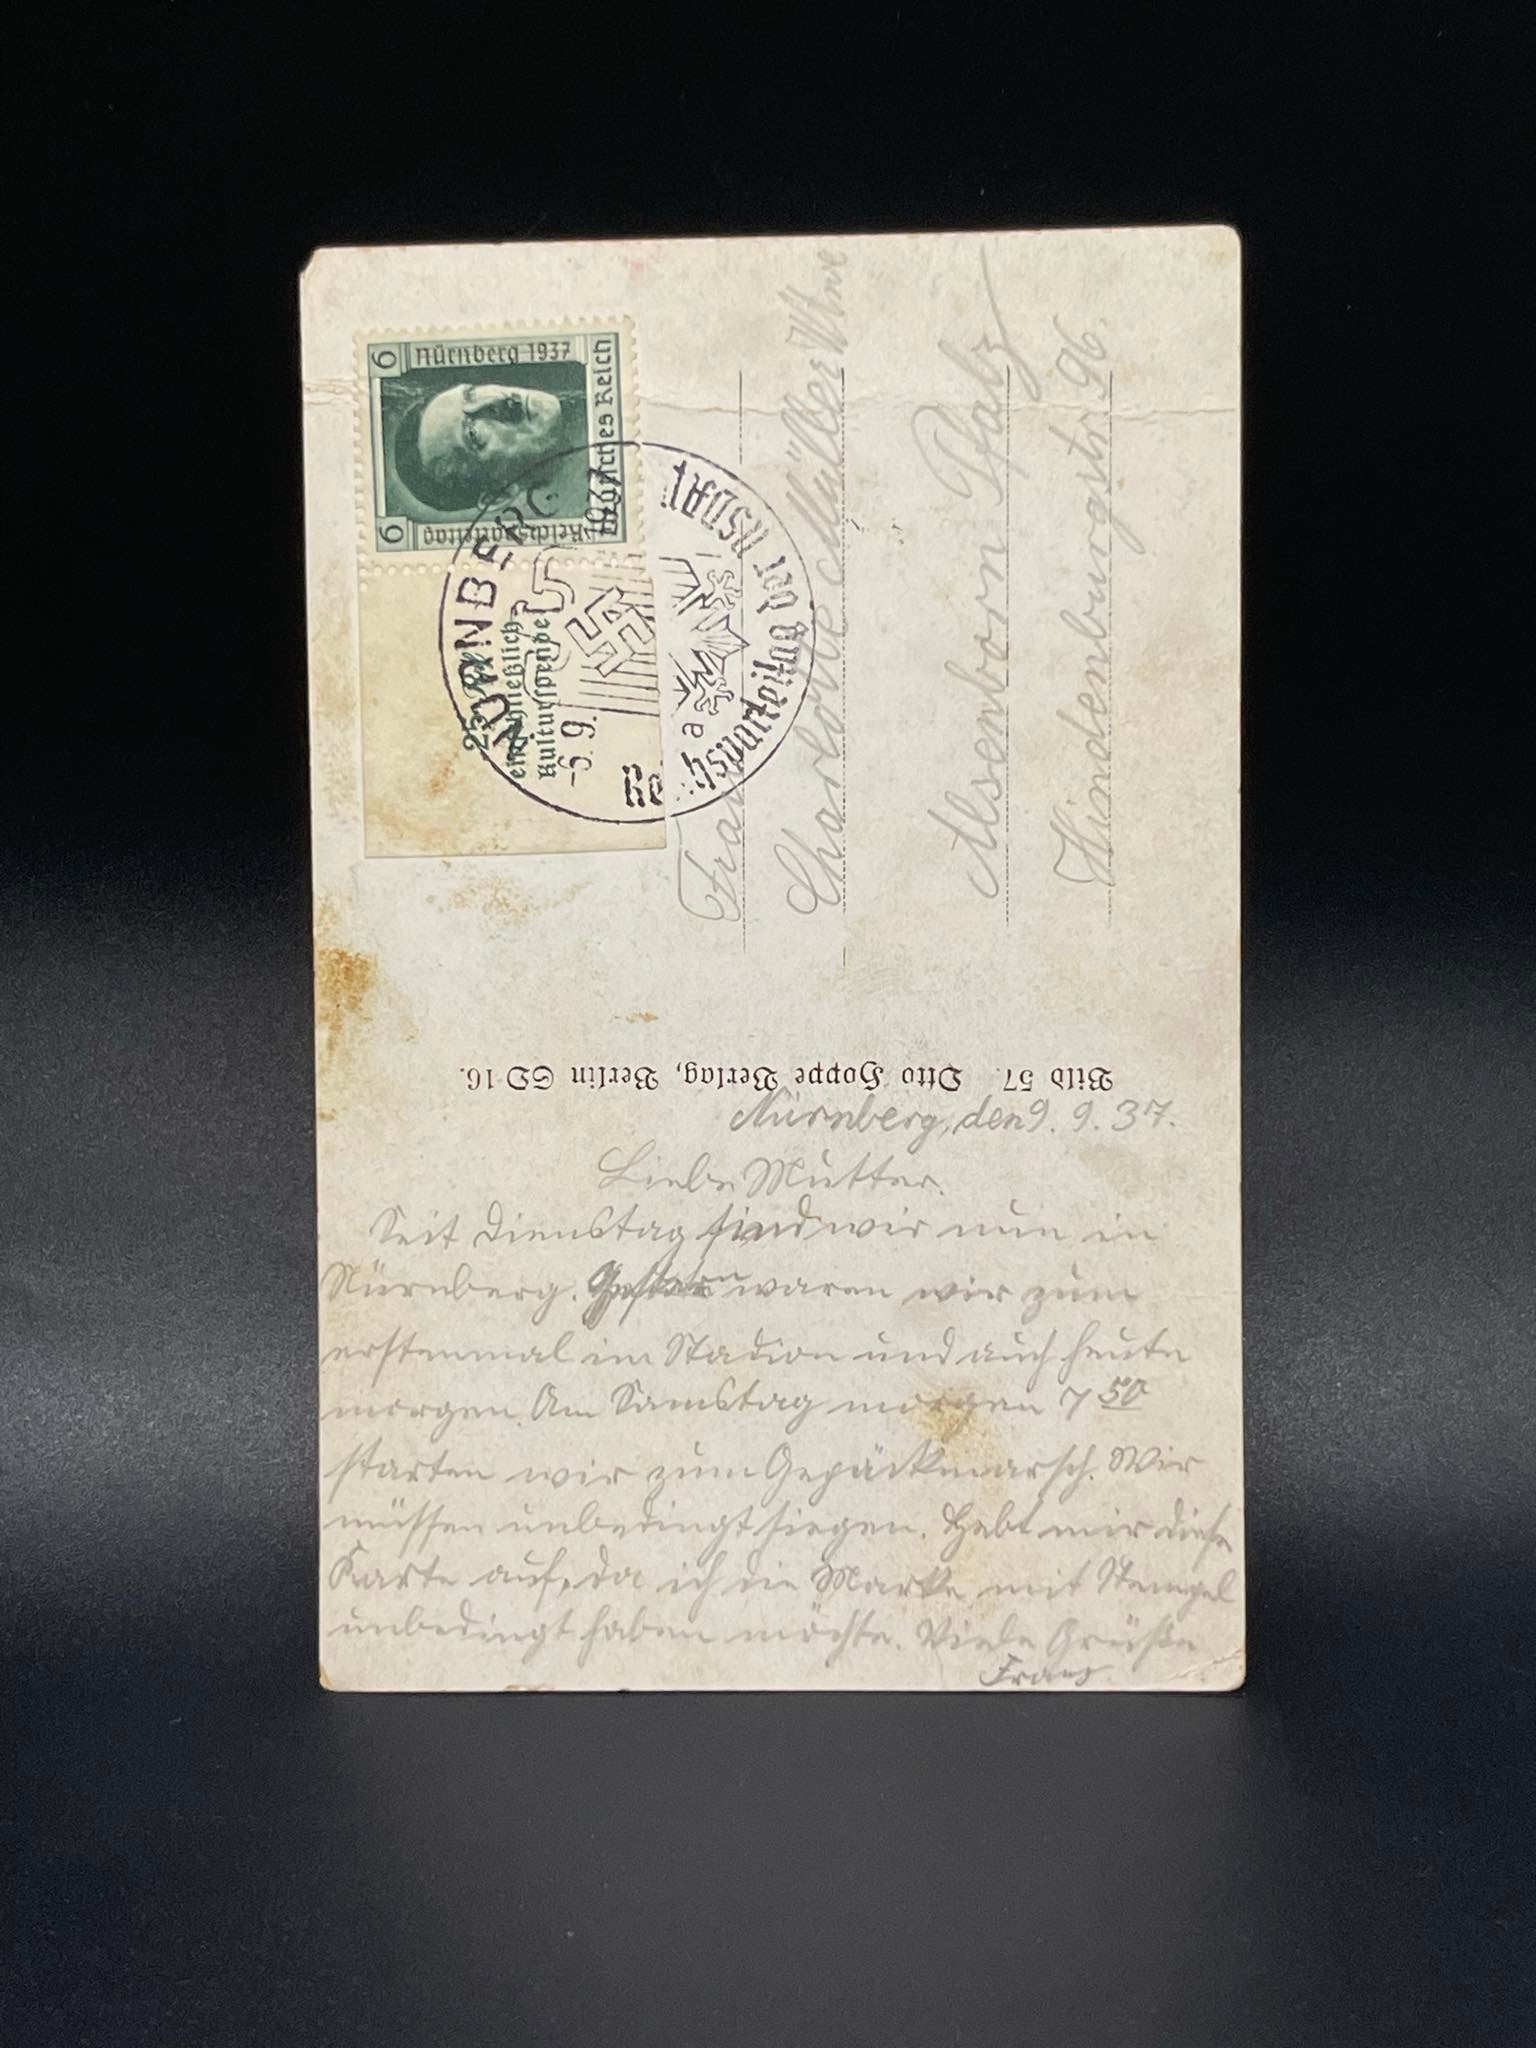 6
Nürnberg 1937
Deutsches Reich
Reichsparteitag
6
25 Rpf
einschließlich
Kulturspende
NÜRNBERG
1937
-6.9.
a
Reichsparteitag der NSDAP
Frau
Charlotte Müller Wtwe
Alsenborn Pfalz
Hindenburgstr. 96.
Bild 57. Otto Hoppe Verlag, Berlin SO 16.
Nürnberg, den 9. 9. 37.
Liebe Mutter.
Seit Dienstag sind wir nun in
Nürnberg. Gestern waren wir zum
erstenmal im Stadion und auch heute
morgen. Am Samstag morgen 7 50
starten wir zum Gepäckmarsch. Wir
müssen unbedingt siegen. Hebt mir diese
Karte auf, da ich die Marke mit Stempel
unbedingt haben möchte. Viele Grüße
Franz